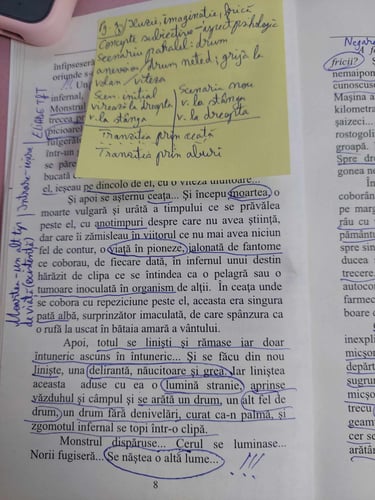 Iluzii, imaginație, frică
Concepte subiective - aspect psihologic
Scenariu paralel: drum
anevoios / drum neted; grijă la
volan / viteza
Scen. inițial
virează la dreapta
v. la stânga
Scenariu nou
v. la stânga
v. la dreapta
Tranziția prin ceață
Tranziția prin aburi
înfipseseră
oriunde s-
Un
infernal,
Monstrul
trecea pe
picioarele
fulgerăto
într-un
se păre
bucată
el, ieșeau pe dincolo de el, cu o viteză uluitoare...
Și apoi se așternu ceața... Și începu moartea, o
moarte vulgară și urâtă a timpului ce se prăvălea
peste el, cu anotimpuri despre care nu avea știință,
dar care îi zămisleau în viitorul ce nu mai avea niciun
fel de contur, o viață în pioneze, jalonată de fantome
ce coborau, de fiecare dată, în infernul unui destin
hărăzit de clipa ce se întindea ca o pelagră sau o
tumoare inoculată în organism de alții. În ceața unde
se cobora cu repeziciune peste el, aceasta era singura
pată albă, surprinzător imaculată, de care spânzura ca
o rufă la uscat în bătaia amară a vântului.
Apoi, totul se liniști și rămase iar doar
întuneric ascuns în întuneric... Și se făcu din nou
liniște, una delirantă, năucitoare și grea. Iar liniștea
aceasta aduse cu ea o lumină stranie, aprinse
văzduhul și câmpul și se arătă un drum, un alt fel de
drum, un drum fără denivelări, curat ca-n palmă, și
zgomotul infernal se topi într-o clipă.
Monstrul dispăruse... Cerul se luminase...
Norii fugiseră... Se năștea o altă lume...
!!!
8
fricii?
nemaipon
cunoscuse
Mașina a
kilometr
șaizeci...
rostogoli
groapă.
Spre dre
gonea ne
coborân
pe marg
râu cu
pământu
spre str
ducea
trecere.
autocon
farmec
boare d
inexpli
micșor
depărt
sugrun
micșo
trecu
geam
cer se
arătân